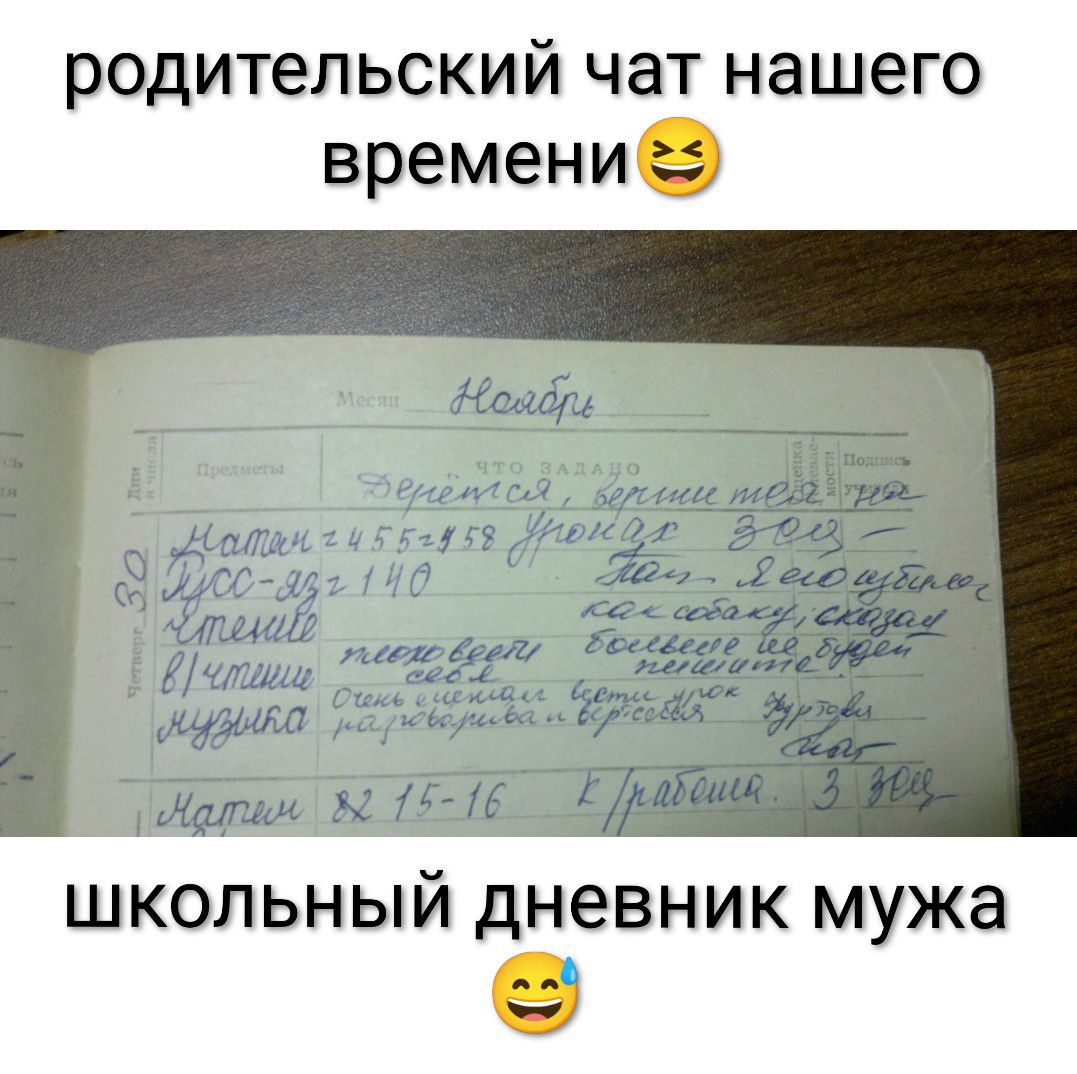 родительский чат нашего
времени😆
Месяц Ноябрь
Дни и числа
Предметы
ЧТО ЗАДАНО
Оценка успеваемости
Подпись учителя
Дерётся, вертится на
уроках
Четверг 30
Матем = 455=458
Русс-яз = 140
Я его избила
чтение
как собаку, сказал
в/чтение плохо вести себя
больше не будет
пишите.
музыка
Очень мешал вести урок
разговаривал вертелся
Матем 15-16 к/работа. 3
школьный дневник мужа
😅